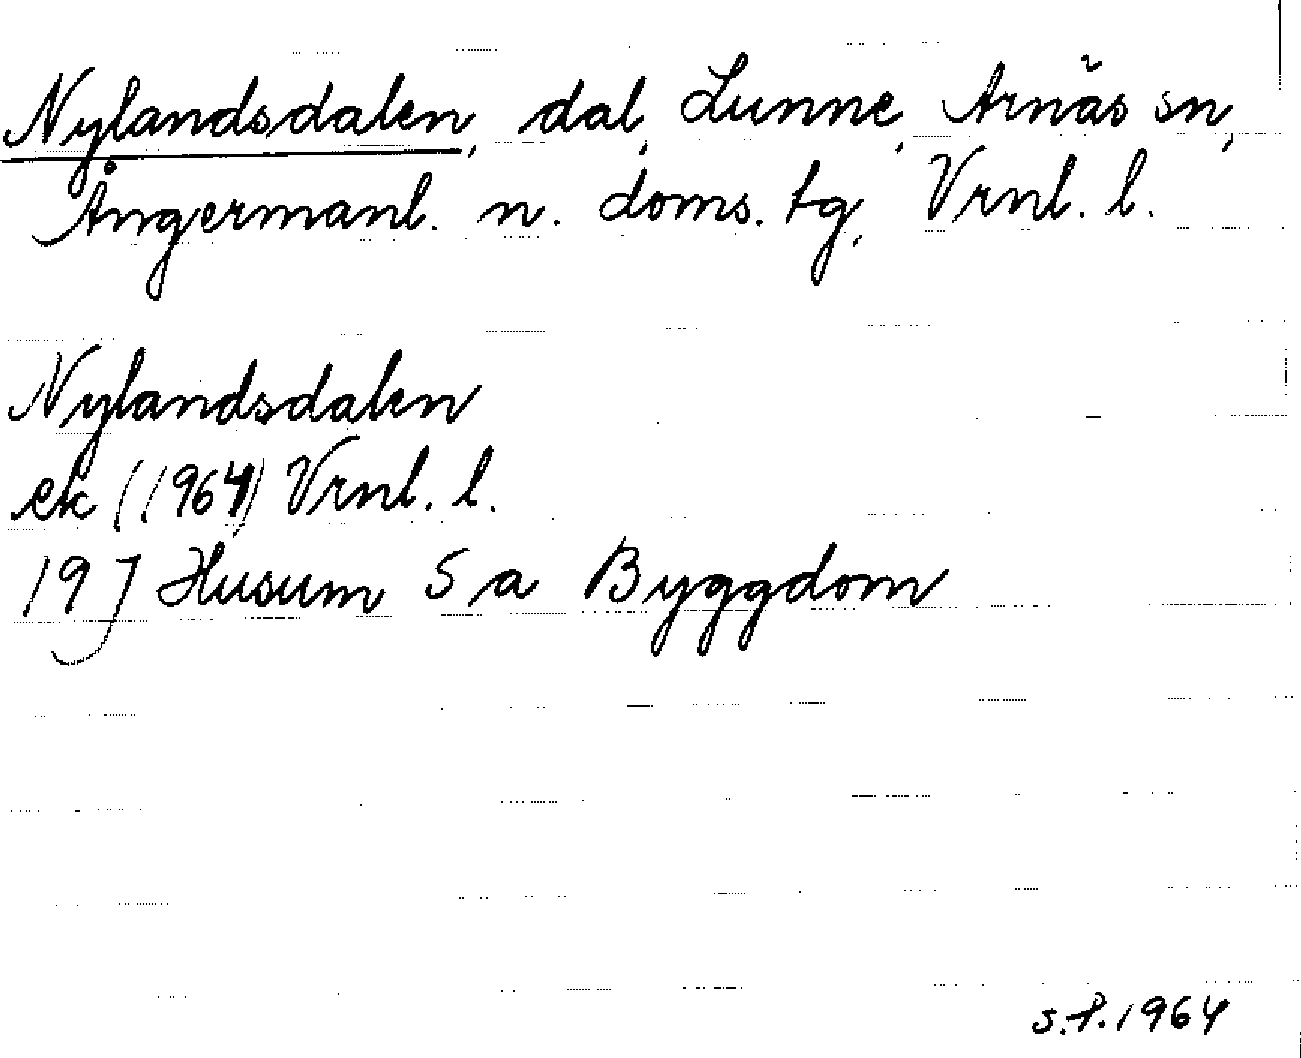 Nylandsdalen, dal, Lunne, Arnäs sn,
Ångermanl. n. doms. tg, Vrnl. l.
Nylandsdalen
ek (1964) Vrnl. l.
19 J Husum 5 a Byggdom
S.P. 1964